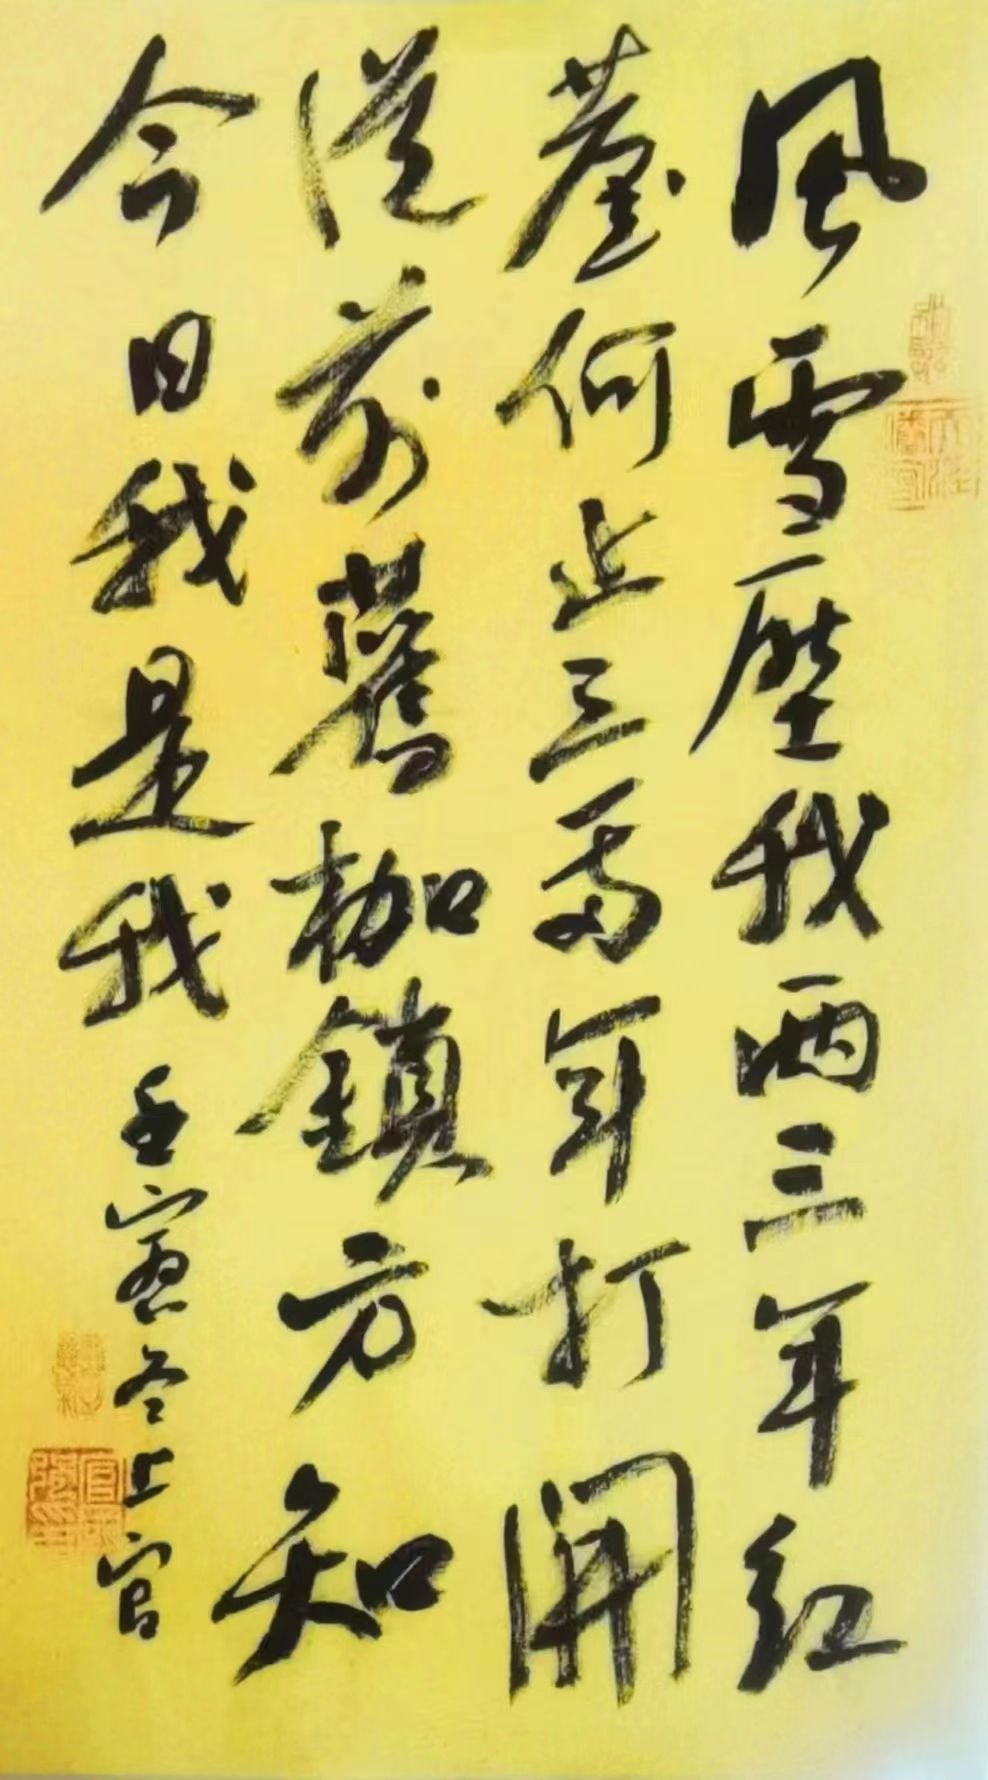 風雪壓我兩三年紅
塵何止三年打開
從前舊枷鎖方知
今日我是我
壬寅冬上官